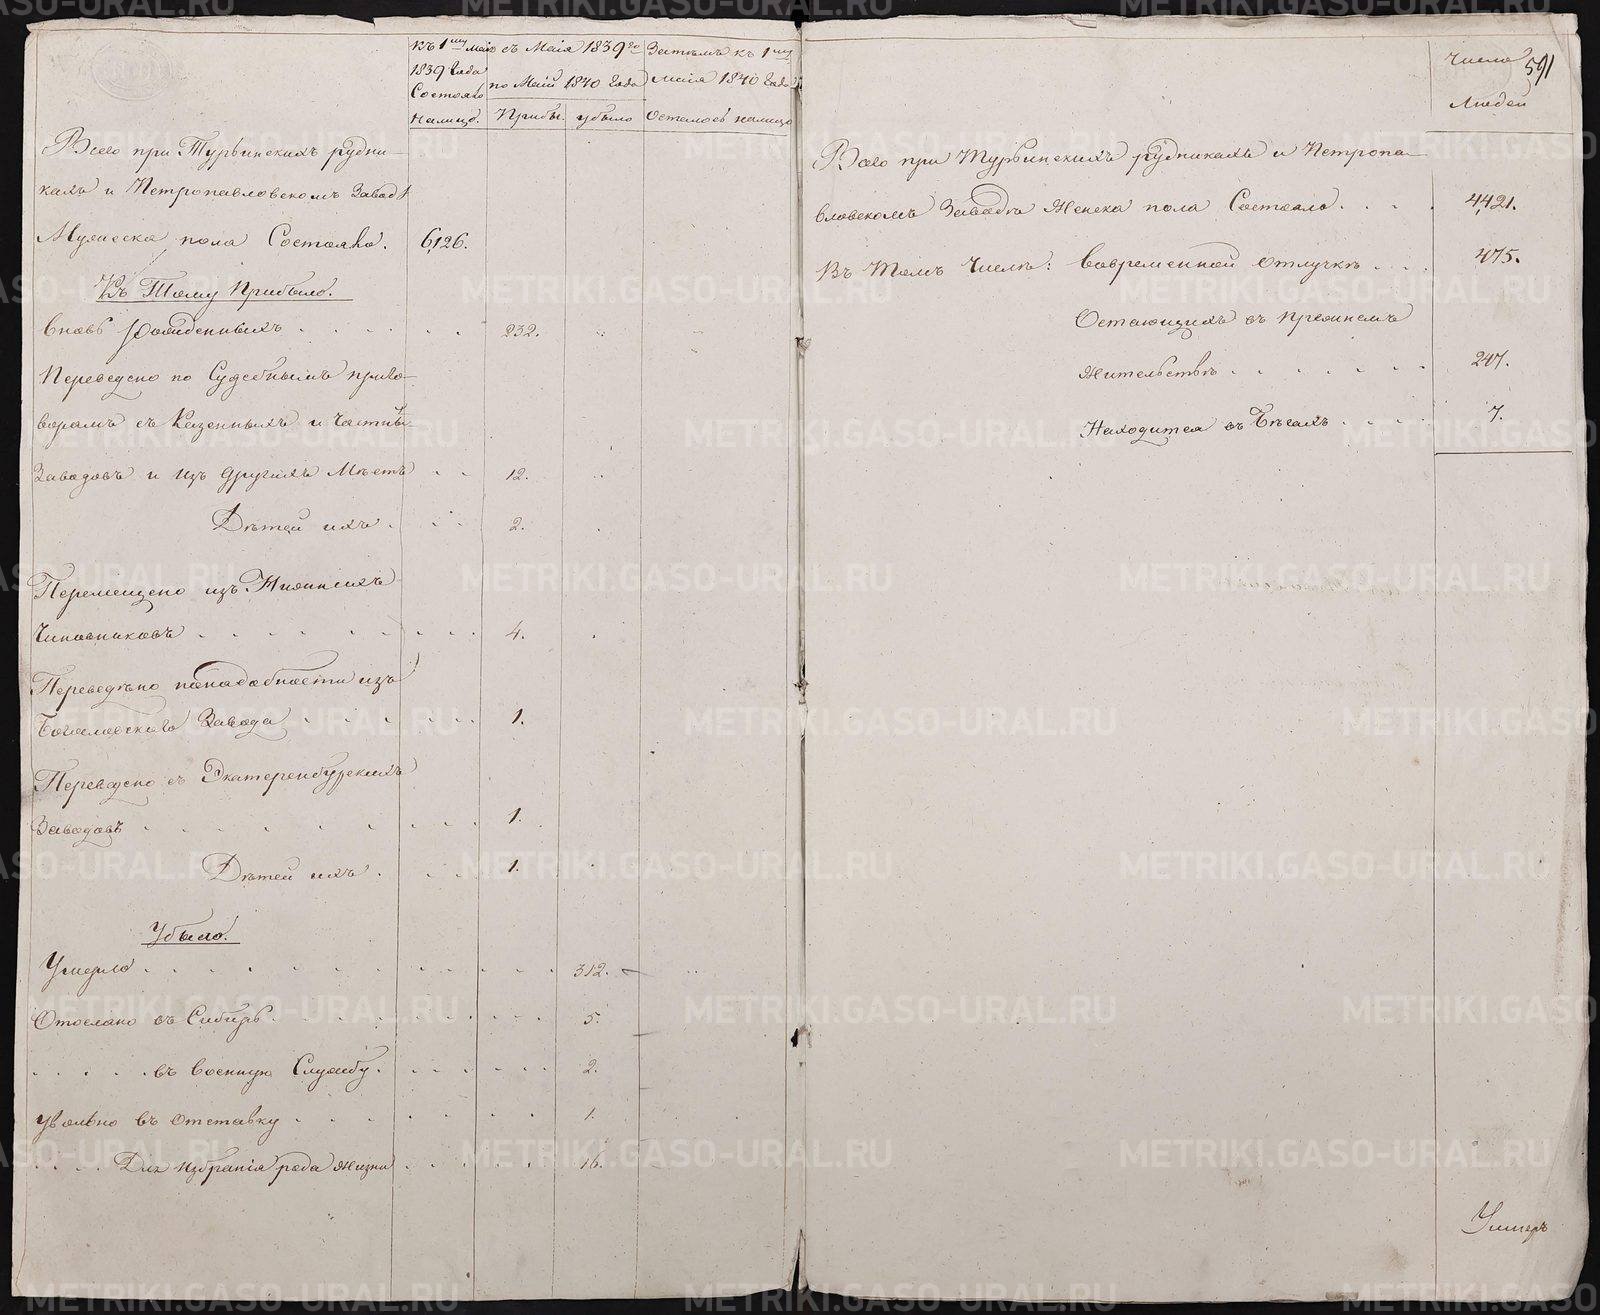 Къ 1му Маю 1839 Года Состояло Налицо.
съ Маія 1839го по Маій 1840 Года
Прибы. убыло
Затѣмъ къ 1му Маія 1840 Года Осталось налицо
Всего при Турьинскихъ рудни-
кахъ и Петропавловскомъ Заводѣ
Мужеска пола Состояло. 6,126.
Къ Тому Прибыло.
Вновь рожденныхъ . . . . . . 232.
Переведено по Судебнымъ приго-
ворамъ съ Казенныхъ и Частны
Заводовъ и изъ другихъ Мѣстъ . . 12.
Дѣтей ихъ . . . 2.
Перемещено изъ Нижнихъ
Чиновниковъ . . . . . . . . 4.
Переведѣно понадобности изъ
Богословскаго Завода . . . . . . 1.
Переведено съ Екатеренбурскихъ
Заводовъ . . . . . . . . . 1.
Дѣтей ихъ . . . 1.
Убыло.
Умерло . . . . . . . . . . . 312.
Отослано въ Сибирь . . . . . . . . 5.
. . . . . въ военную Службу . . . . . . . 2.
Уволѣно въ отставку . . . . . . . . 1.
. . . . Для избранія рода жизни . . . . . . 16.
Число Людей
591
Всего при Турьинскихъ рудникахъ и Петропа-
вловскомъ Заводѣ Женска пола Состояло . . . . 4,421.
Въ Томъ Числѣ: вовременной отлучкѣ . . . 475.
Остающихъ въ прежнемъ
жительствѣ . . . . . . . 247.
Находится въ Бѣгахъ . . . . 7.
Умеръ
METRIKI.GASO-URAL.RU